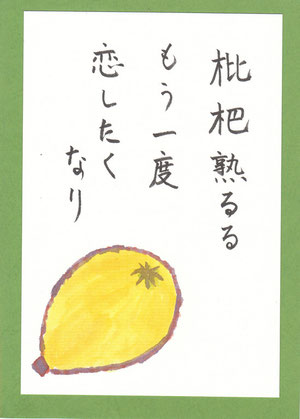 枇杷熟るる
もう一度
恋したく
なり